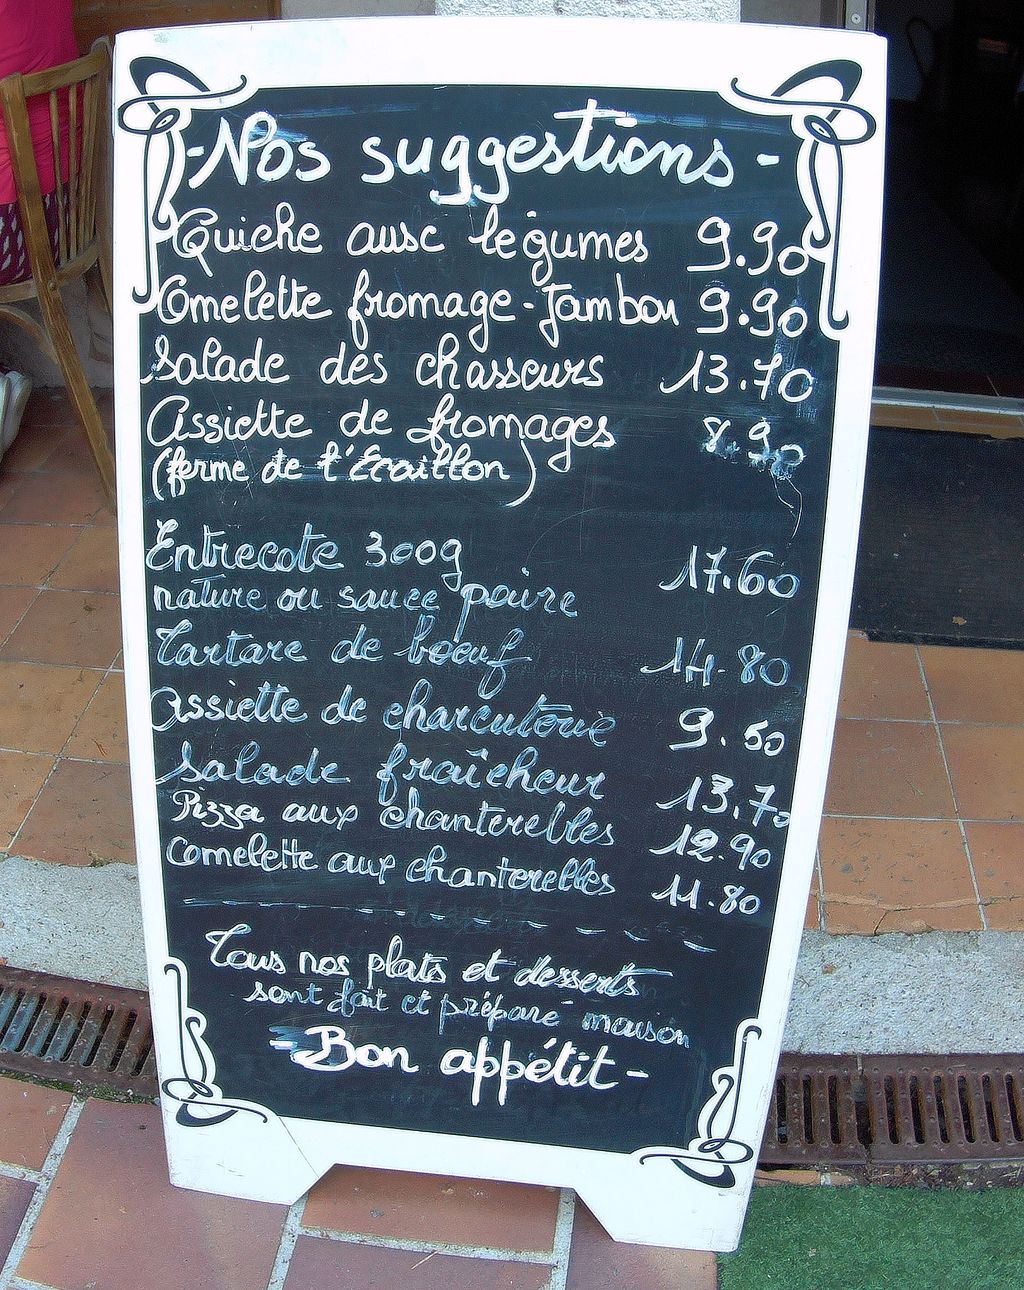 - Nos suggestions -
Quiche ausc légumes 9.90
Omelette fromage-Jambon 9.90
Salade des chasseurs 13.70
Assiette de fromages 8.90
(ferme de l'Ecaillon)
Entrecote 300g 17.60
nature ou sauce poivre
Tartare de boeuf 14.80
Assiette de charcuterie 9.50
Salade fraîcheur 13.70
Pizza aux chanterelles 12.90
Omelette aux chanterelles 11.80
Tous nos plats et desserts
sont fait et préparé maison
- Bon appétit -